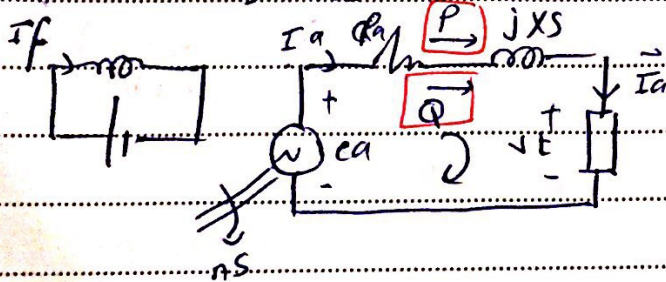 If
Ia Ra P jXS
Ia
+
Q
ea
Vt
+
-
-
nS